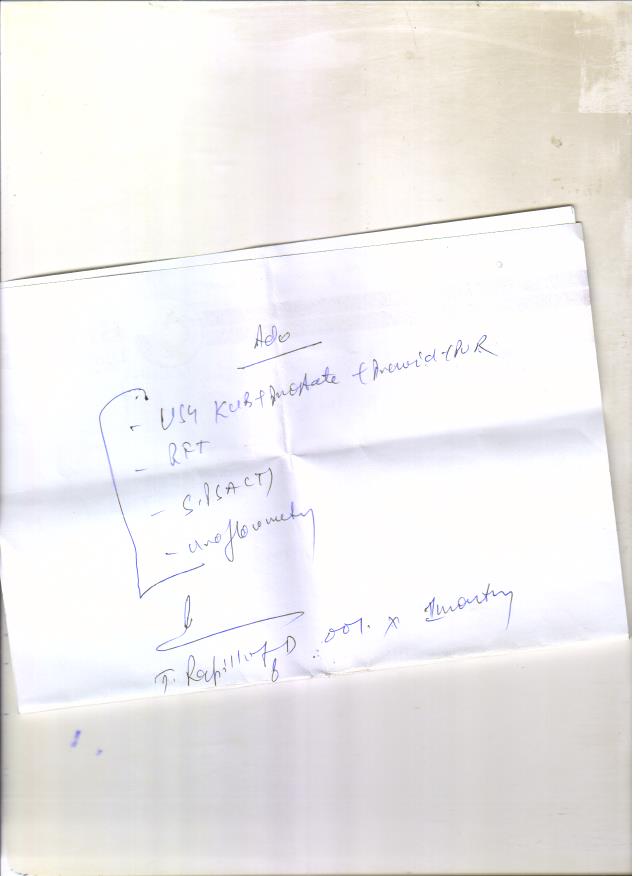 Adv
- USG KUB + Prostate + Prevoid + PVR
- RFT
- S. PSA (T)
- uroflowmetry
T. Rapilif D 001 x 1 month